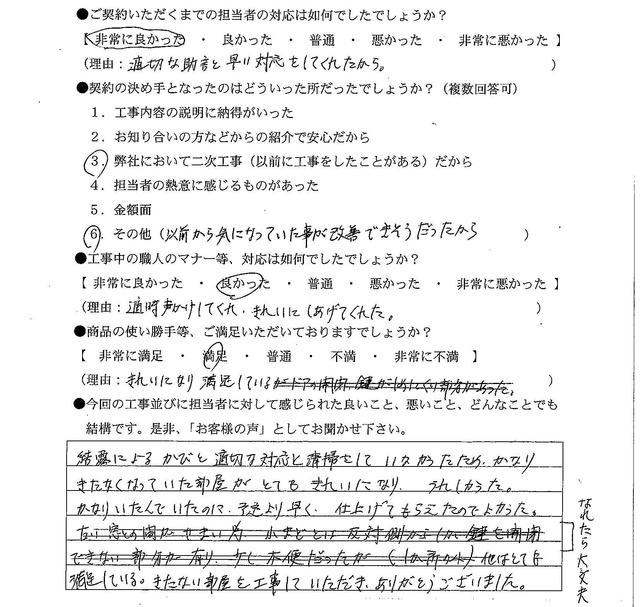 ●ご契約いただくまでの担当者の対応は如何でしたでしょうか？
【 非常に良かった ・ 良かった ・ 普通 ・ 悪かった ・ 非常に悪かった 】
（理由：適切な助言と早い対応をしてくれたから。 ）
●契約の決め手となったのはどういった所だったでしょうか？（複数回答可）
１．工事内容の説明に納得がいった
２．お知り合いの方などからの紹介で安心だから
３．弊社において二次工事（以前に工事をしたことがある）だから
４．担当者の熱意に感じるものがあった
５．金額面
６．その他（以前から気になっていた事が改善できそうだったから ）
●工事中の職人のマナー等、対応は如何でしたでしょうか？
【 非常に良かった ・ 良かった ・ 普通 ・ 悪かった ・ 非常に悪かった 】
（理由：適時声かけしてくれ、きれいにしあげてくれた。 ）
●商品の使い勝手等、ご満足いただいておりますでしょうか？
【 非常に満足 ・ 満足 ・ 普通 ・ 不満 ・ 非常に不満 】
（理由：きれいになり満足している がドアの開閉、鍵がしめにくい部分があった。 ）
●今回の工事並びに担当者に対して感じられた良いこと、悪いこと、どんなことでも
結構です。是非、「お客様の声」としてお聞かせ下さい。
結露によるかびと適切な対応と清掃をしていなかったため、かなり
きたなくなっていた部屋がとてもきれいになり、うれしかった。
かなりいたんでいたのに、予定より早く、仕上げてもらえたのでよかった。
窓との間がせまい為、小まどとは反対側からしか鍵を開閉
できない部分が有り、少し不便だったが（1か所のみ）他はとても
満足している。きたない部屋を工事していただき、ありがとうございました。
なれたら大丈夫